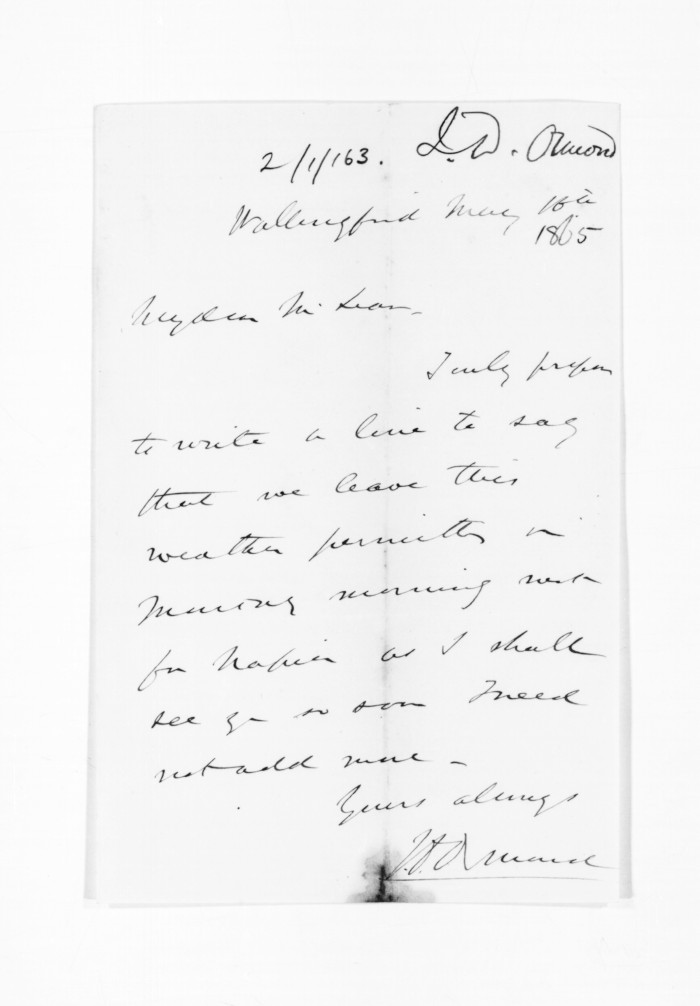 2/1/163. J. D. Ormond
Wallingford May 16th
1865
My dear McLean,
I only propose
to write a line to say
that we leave this
weather permitting on
Monday morning next
for Napier as I shall
see you so soon I need
not add more -
Yours always
J.D. Ormond